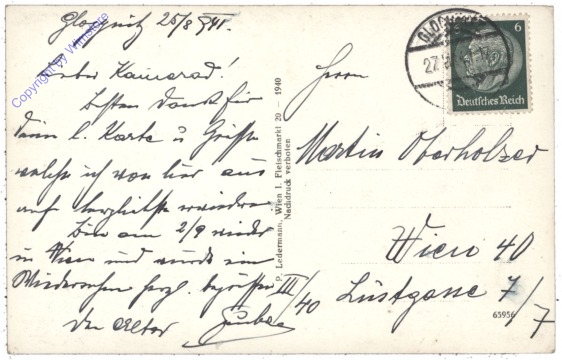 Gloggnitz 25/8 1941.
Lieber Kamerad!
Besten Dank für
deine l. Karte u Grüsse
welche ich von hier aus
auf herzlichste erwidere
Bin am 2/9 wieder
in Wien und würde im
Wiedersehen herzl. begrüssen
Der Alter
Herrn
Martin Oberholzer
Wien 40
Lustgasse 7/7
III/40
GLOGGNITZ
27
6
Deutsches Reich
P. Ledermann, Wien I. Fleischmarkt 20 — 1940
Nachdruck verboten
65956
Copyright by Wilnitsky